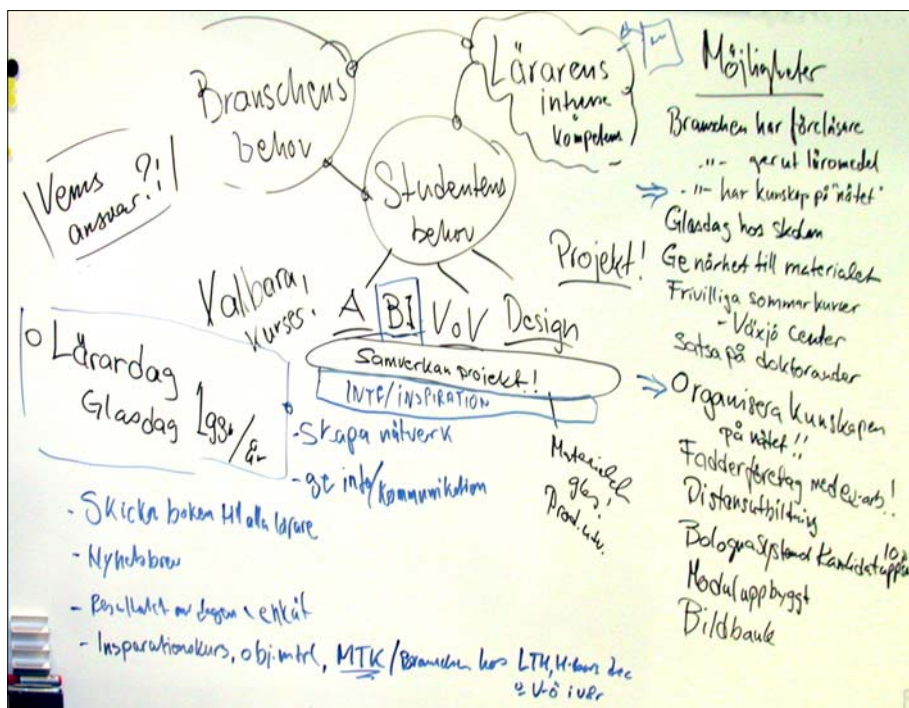 Branschens
behov
Lärarens
intresse
kompetens
Studentens
behov
Vems ?!
ansvar?!
Valbara
kurser!
Projekt!
A BI VoV Design
Samverkan projekt!
INTE/INSPIRATION
Lärardag
Glasdag 1gg/år
- Skapa nätverk
- ge info/kommunikation
Materialet
glas!
Prod.utv.
- Skicka boken till alla lärare
- Nyhetsbrev
- Resultatet av dagen enkät
- Insparationskurs, obj.mtrl, MTK/Branschen hos LTH,
V-ö
Möjligheter
Branschen har föreläsare
-"- ger ut läromedel
-"- har kunskap på "nätet"
Glasdag hos skolan
Ge närhet till materialet
Frivilliga sommarkurser
- Växjö Center
Satsa på doktorander
Organisera kunskapen
på nätet!!
Fadderföretag med ex-arb.!
Distansutbildning
Bolognasystemet Kandidatupps
Modul uppbyggt
Bildbank